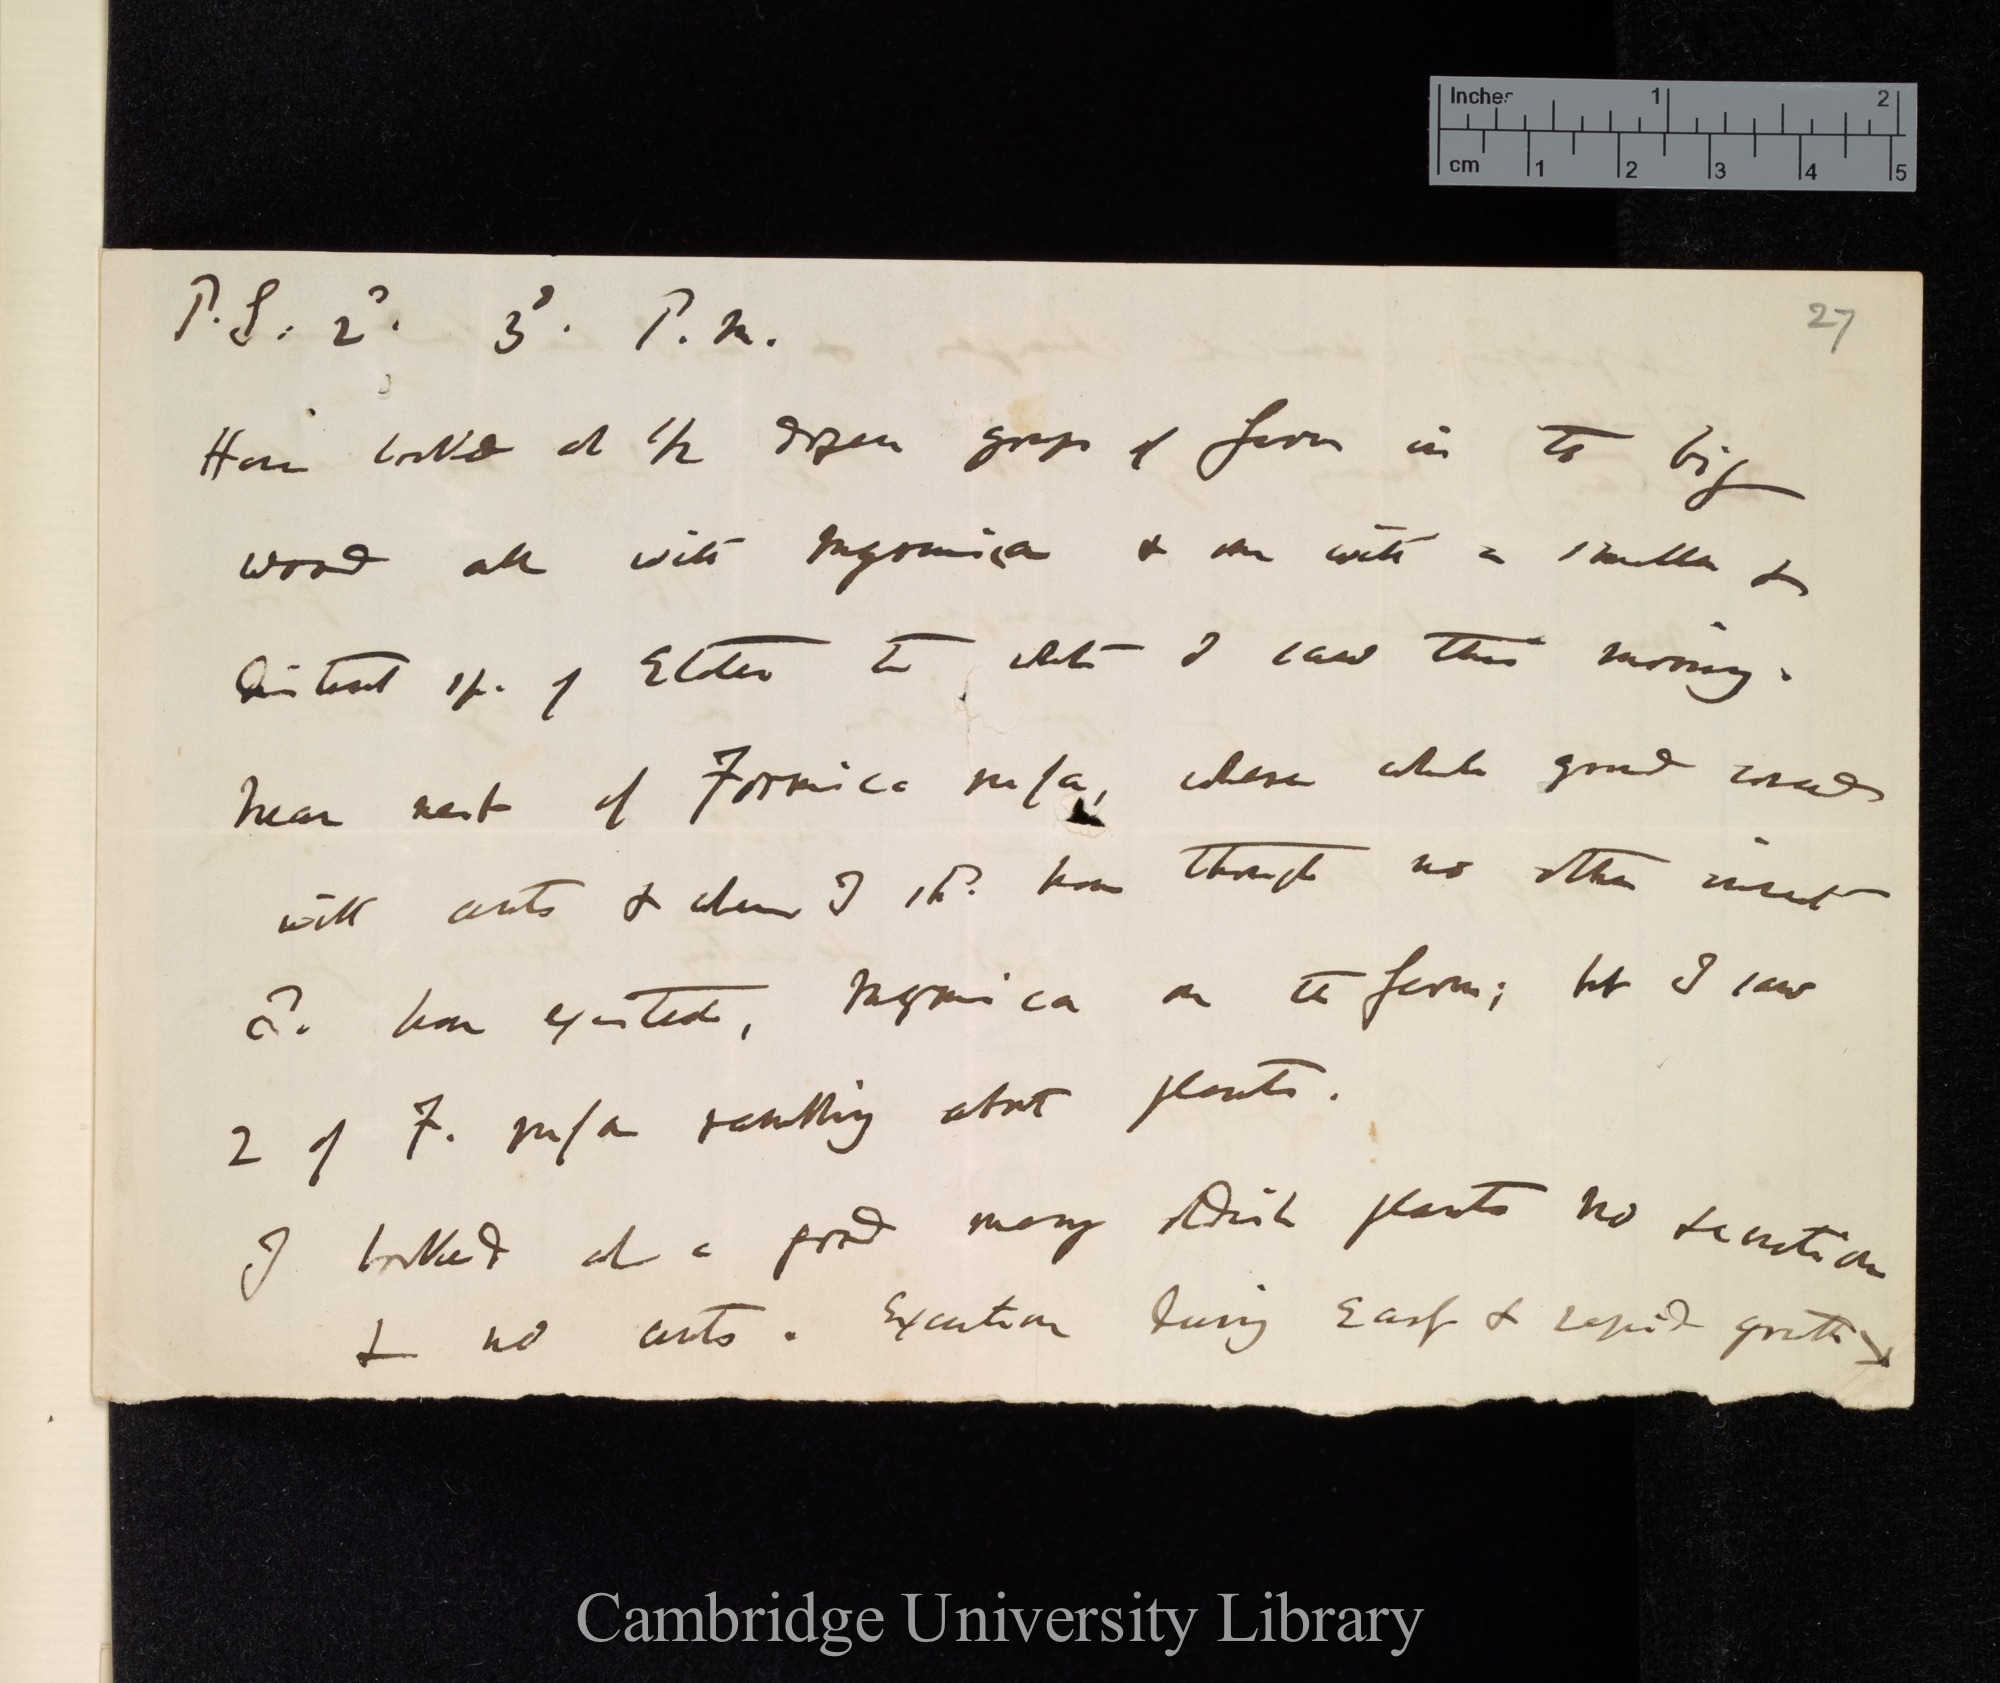 Inches 1 2
cm 1 2 3 4 5
P.S. 2º. 3º. P.M.
27
Have looked at 1/2 dozen groups of fern in the big
wood all with Myrmica & one with a smaller &
distinct sp. of to what I saw this morning.
Near nest of Formica rufa, where whole ground
with ants & where I shd. have thought no other insect
cd. have existed, Myrmica on the fern; but I saw
2 of F. rufa rambling about plants.
I looked at a good many oldish plants no secretion
& no ants. Excretion during early & rapid growth
Cambridge University Library